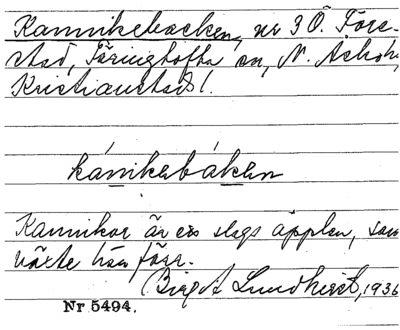 Kannikebacken, nr 3 Ö. Fore-
stad, Färinghofta sn, N. Asbo h,
Kristianstads l.
kánikebáken
Kannikor är ett slags äpplen, som
växte här förr.
Birgit Lundkvist, 1936
Nr 5494.